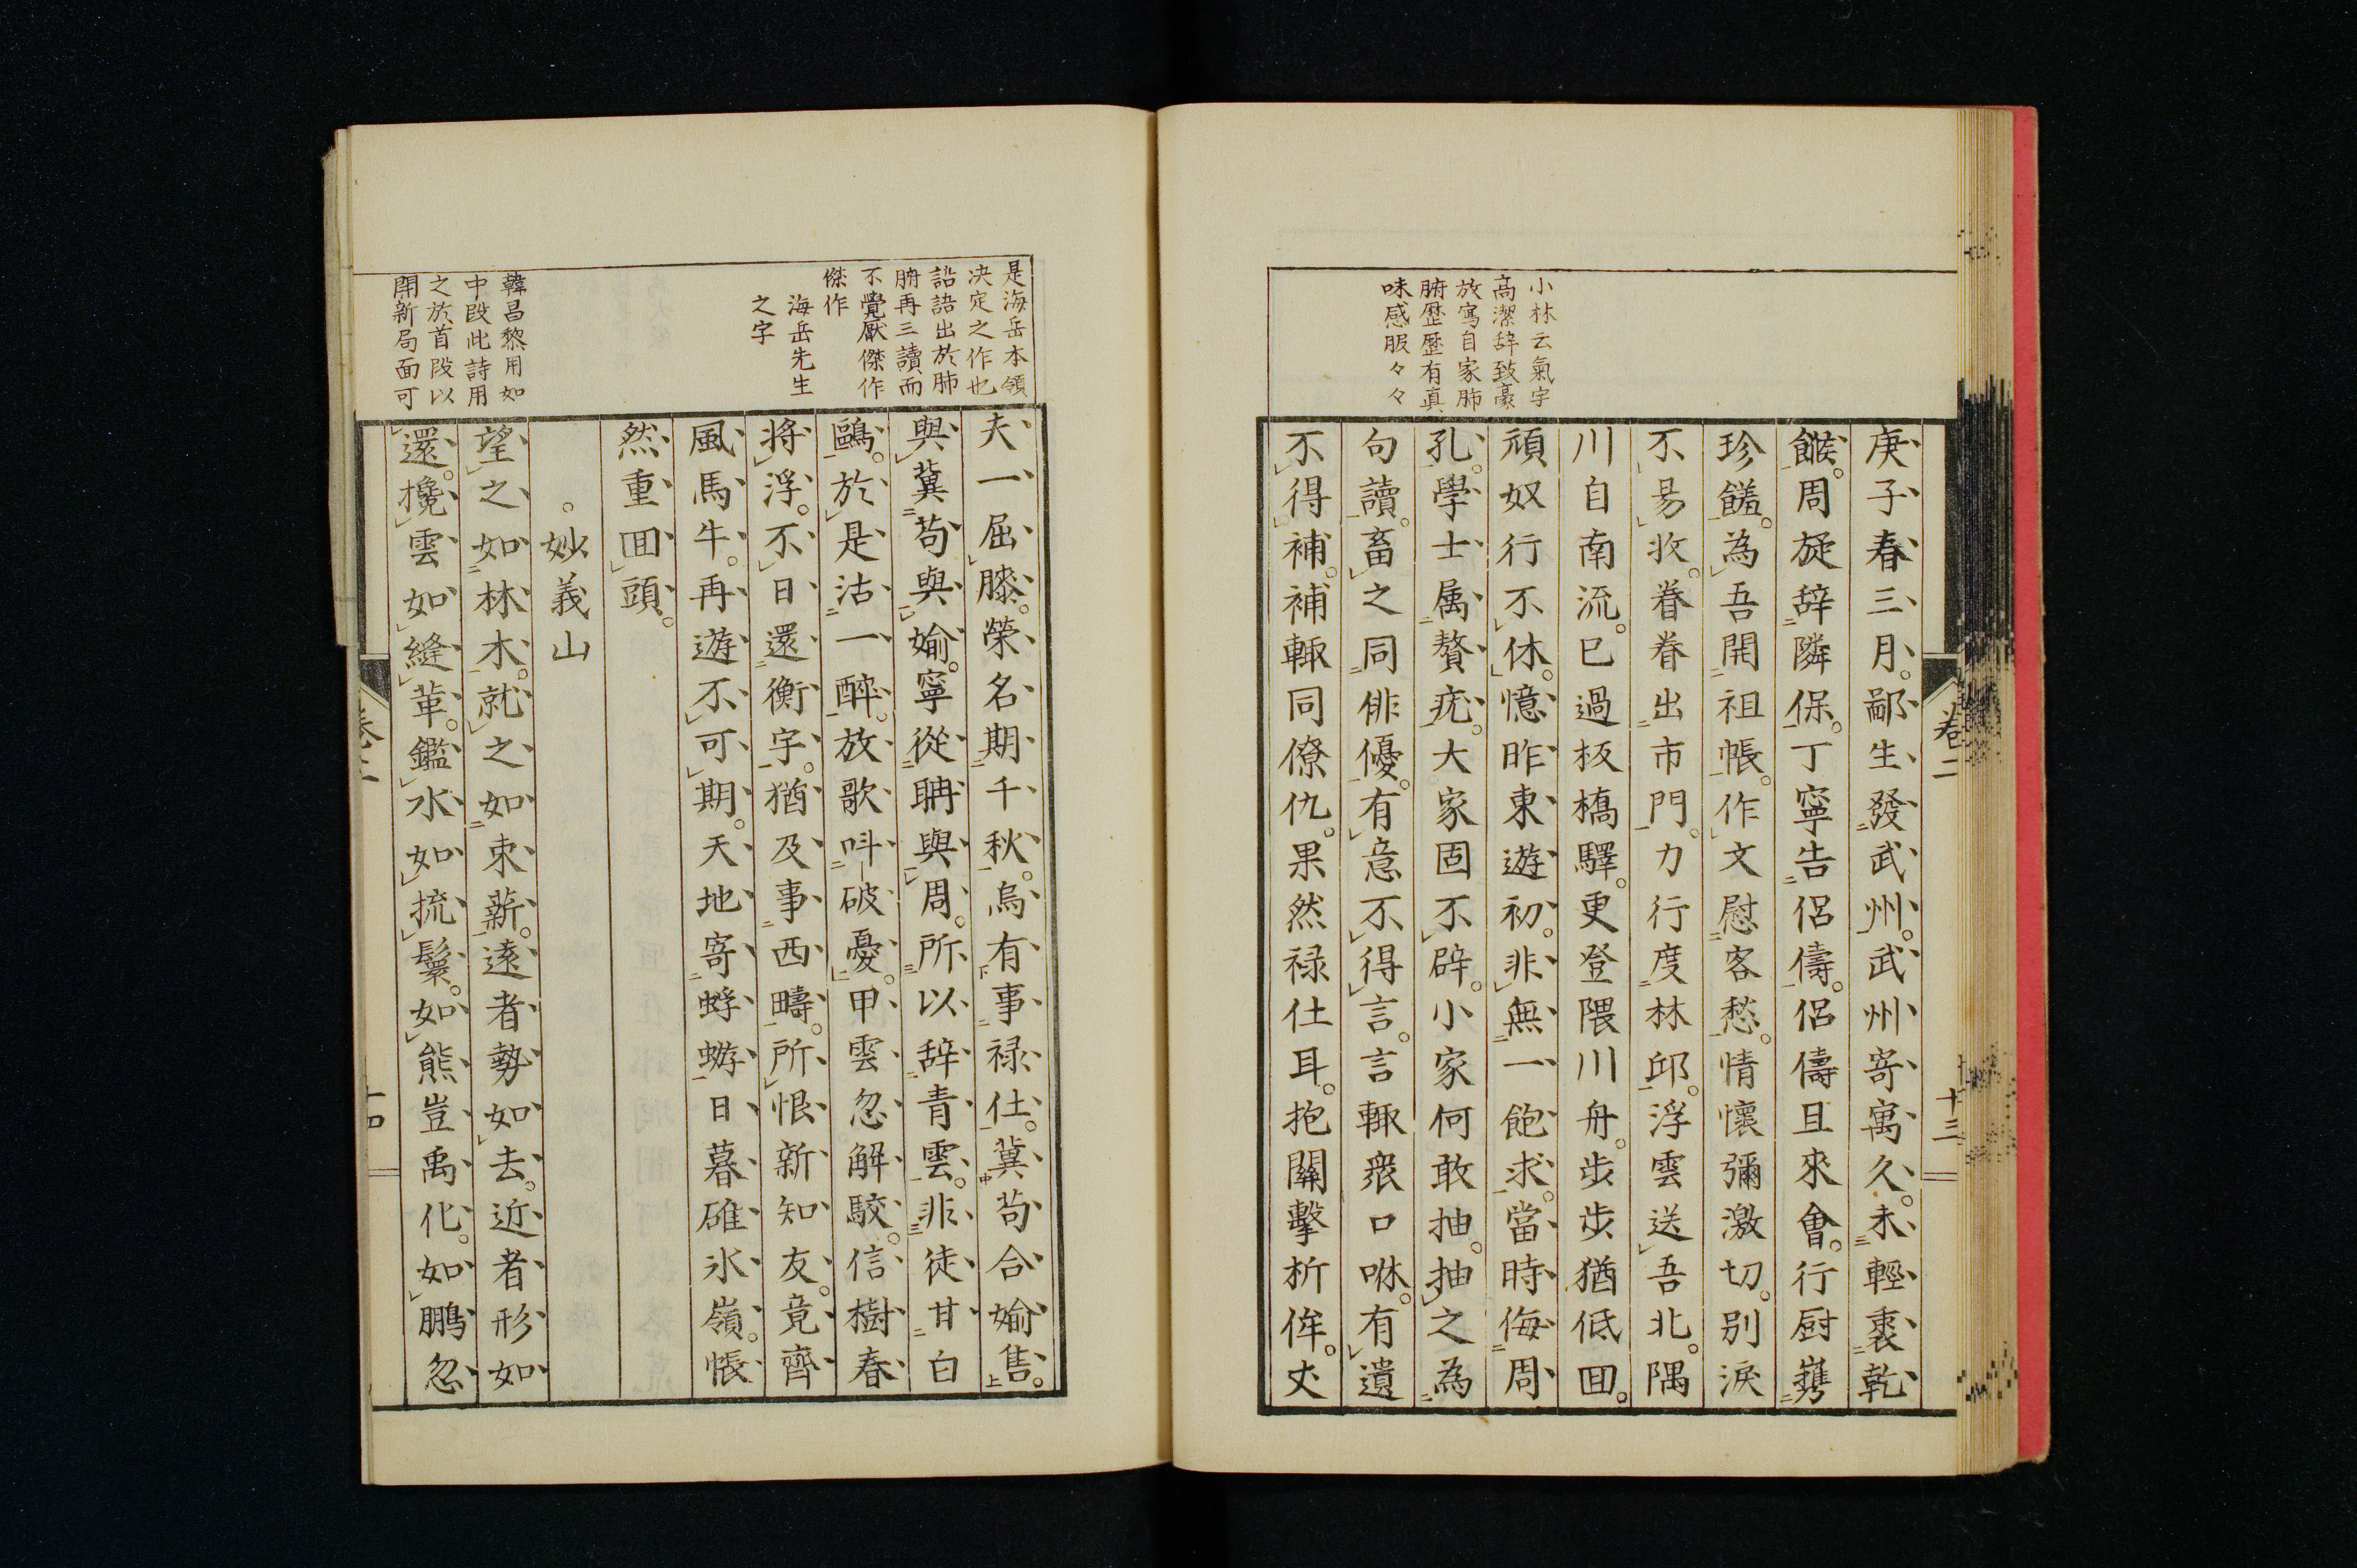 小林云氣宇
高潔辞致豪
放寫自家肺
腑歴歴有真
味感服々々
庚子春三月。鄙生發武州。武州寄寓久。未輕裹乾
餱。周旋辞隣保。丁寧告侶儔。侶儔且來會。行厨雋
珍饈。為吾開祖帳。作文慰客愁。情懷彌激切。別淚
不易收。眷眷出市門。力行度林邱。浮雲送吾北。隅
川自南流。已過板橋驛。更登隈川舟。步步猶低回。
頑奴行不休。憶昨東遊初。非無一飽求。當時侮周
孔。學士属贅疣。大家固不辟。小家何敢抽。抽之為
句讀。畜之同俳優。有意不得言。言輙衆口咻。有遺
不得補。補輙同僚仇。果然禄仕耳。抱關擊柝侔。丈
卷二
十三
是海岳本領
决定之作也
詔語出於肺
腑再三讀而
不覺厭傑作
傑作
海岳先生
之字
韓昌黎用如
中段此詩用
之於首段以
開新局面可
夫一屈膝。榮名期千秋。烏有事禄仕。冀苟合媮售。
與冀苟與媮。寧從聃與周。所以辞青雲。非徒甘白
鷗。於是沽一醉。放歌呌破憂。甲雲忽解駮。信樹春
将浮。不日還衡宇。猶及事西疇。所恨新知友。竟齊
風馬牛。再遊不可期。天地寄蜉蝣。日暮碓氷嶺。悵
然重回頭。
。妙義山
望之如林木。就之如束薪。遠者勢如去。近者形如
還。攙雲如縫革。鑑水如梳鬟。如熊豈禹化。如鵬忽